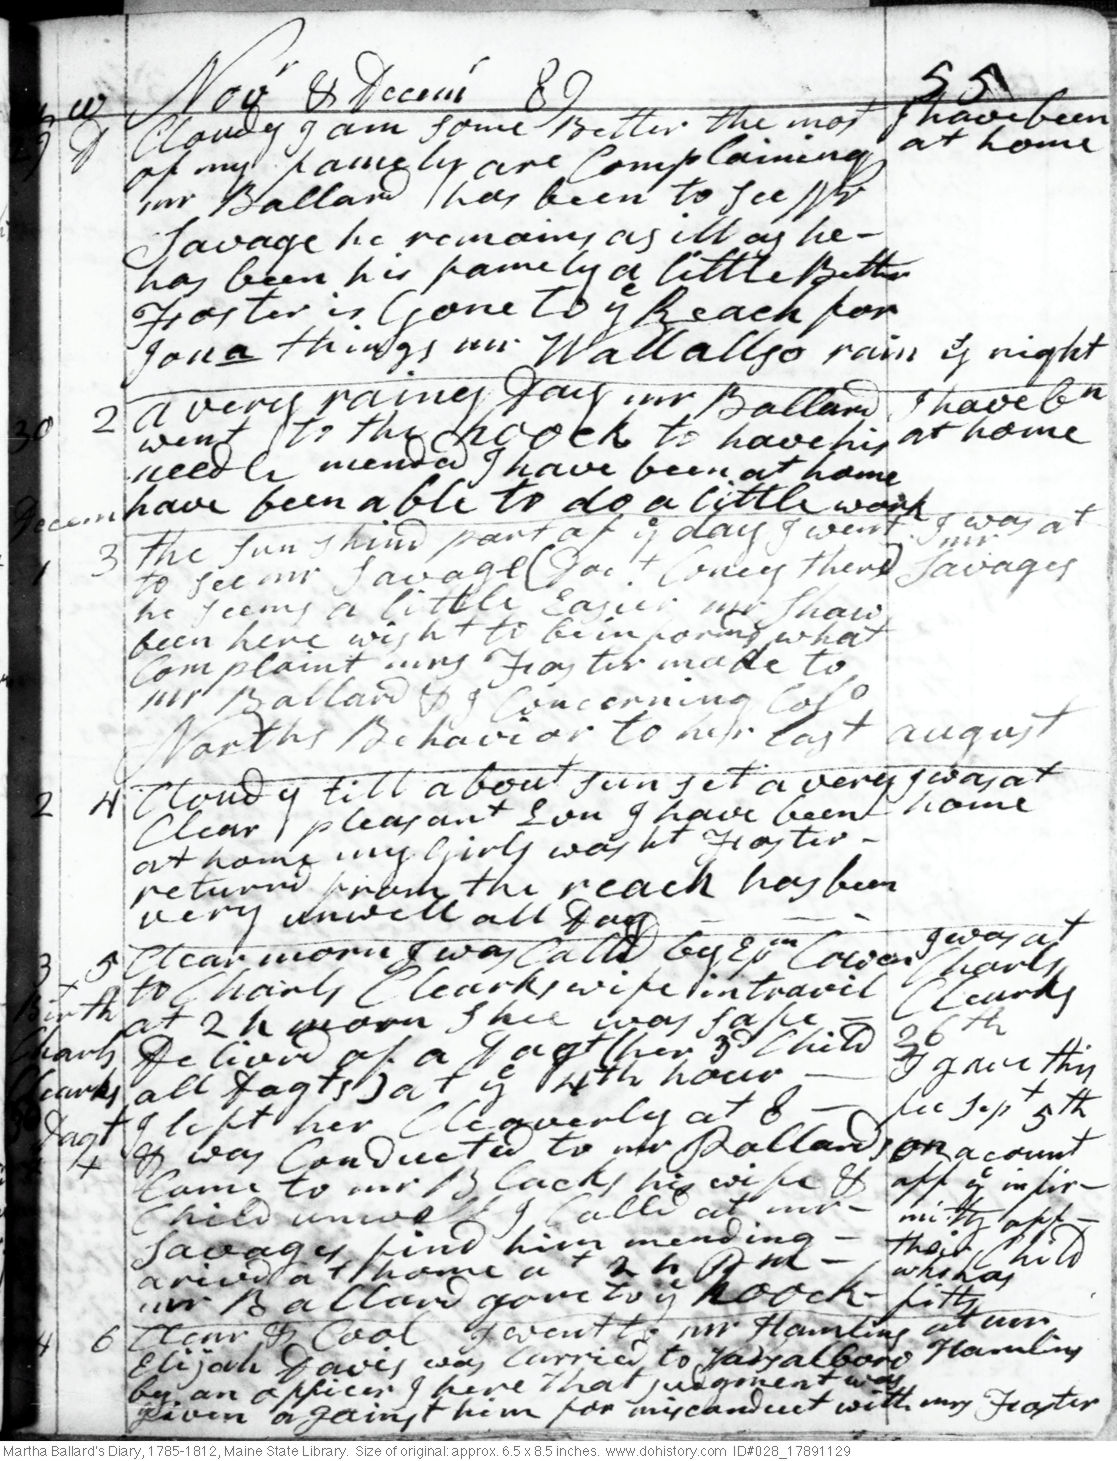 Novr & Decemr 89
55
w
29 D Cloudy I am some Better the most I have been
of my famely are Complaining at home
mr Ballard has been to see mr
Savage he remains as ill as he-
has been his famely a little Better
Foster is Gone to ye Reach for
Jona things mr Wall allso rain ys night
30 2 a very rainey Day mr Ballard I have bn
went to the hoock to have his at home
needle mended I have been at home
have been able to do a little work
Decem
1 3 the sun shind part of ye day I went I was at
to see mr Savage (Doct Coney there) mr Savages
he seems a little Easier mr Shaw
been here wisht to be informd what
Complaint mrs Foster made to
mr Ballard & I Concerning Colo
Norths Behavior to her last august
2 4 Cloudy till about sun set a very I was at
Clear pleasant Evn I have been home
at home my Girls washt Foster-
returnd from the reach has been
very unwell all Day
3 5 Clear morn I was Calld by Epm Cowen I was at
to Charls Clearks wife in travil Charls
at 2 h morn Shee was safe - Clearks
Birth Charls Clearks 36 Dagt X
Deliverd of a Dagt (her 3d Child 26th
all Dagts) at ye 4th hour - I gave this
I left her Cleaverly at 8 - fee Sept 5th
& was Conducted to mr Pollards on acount
Came to mr Blacks his wife & off ye infir-
Child unwell I Calld at mr- mitty off-
Savages find him mending - their Child
arivd at home at 2 h Pm - who has
mr Ballard gone to ye hoock- fitts
4 6 Clear & Cool I went to mr Hamlins at mr
Elijah Davis was Carried to Vassalboro Hamlins
by an officer I here that judgment was
given against him for misconduct with mrs Foster
Martha Ballard's Diary, 1785-1812, Maine State Library. Size of original: approx. 6.5 x 8.5 inches. www.dohistory.com ID#028_17891129